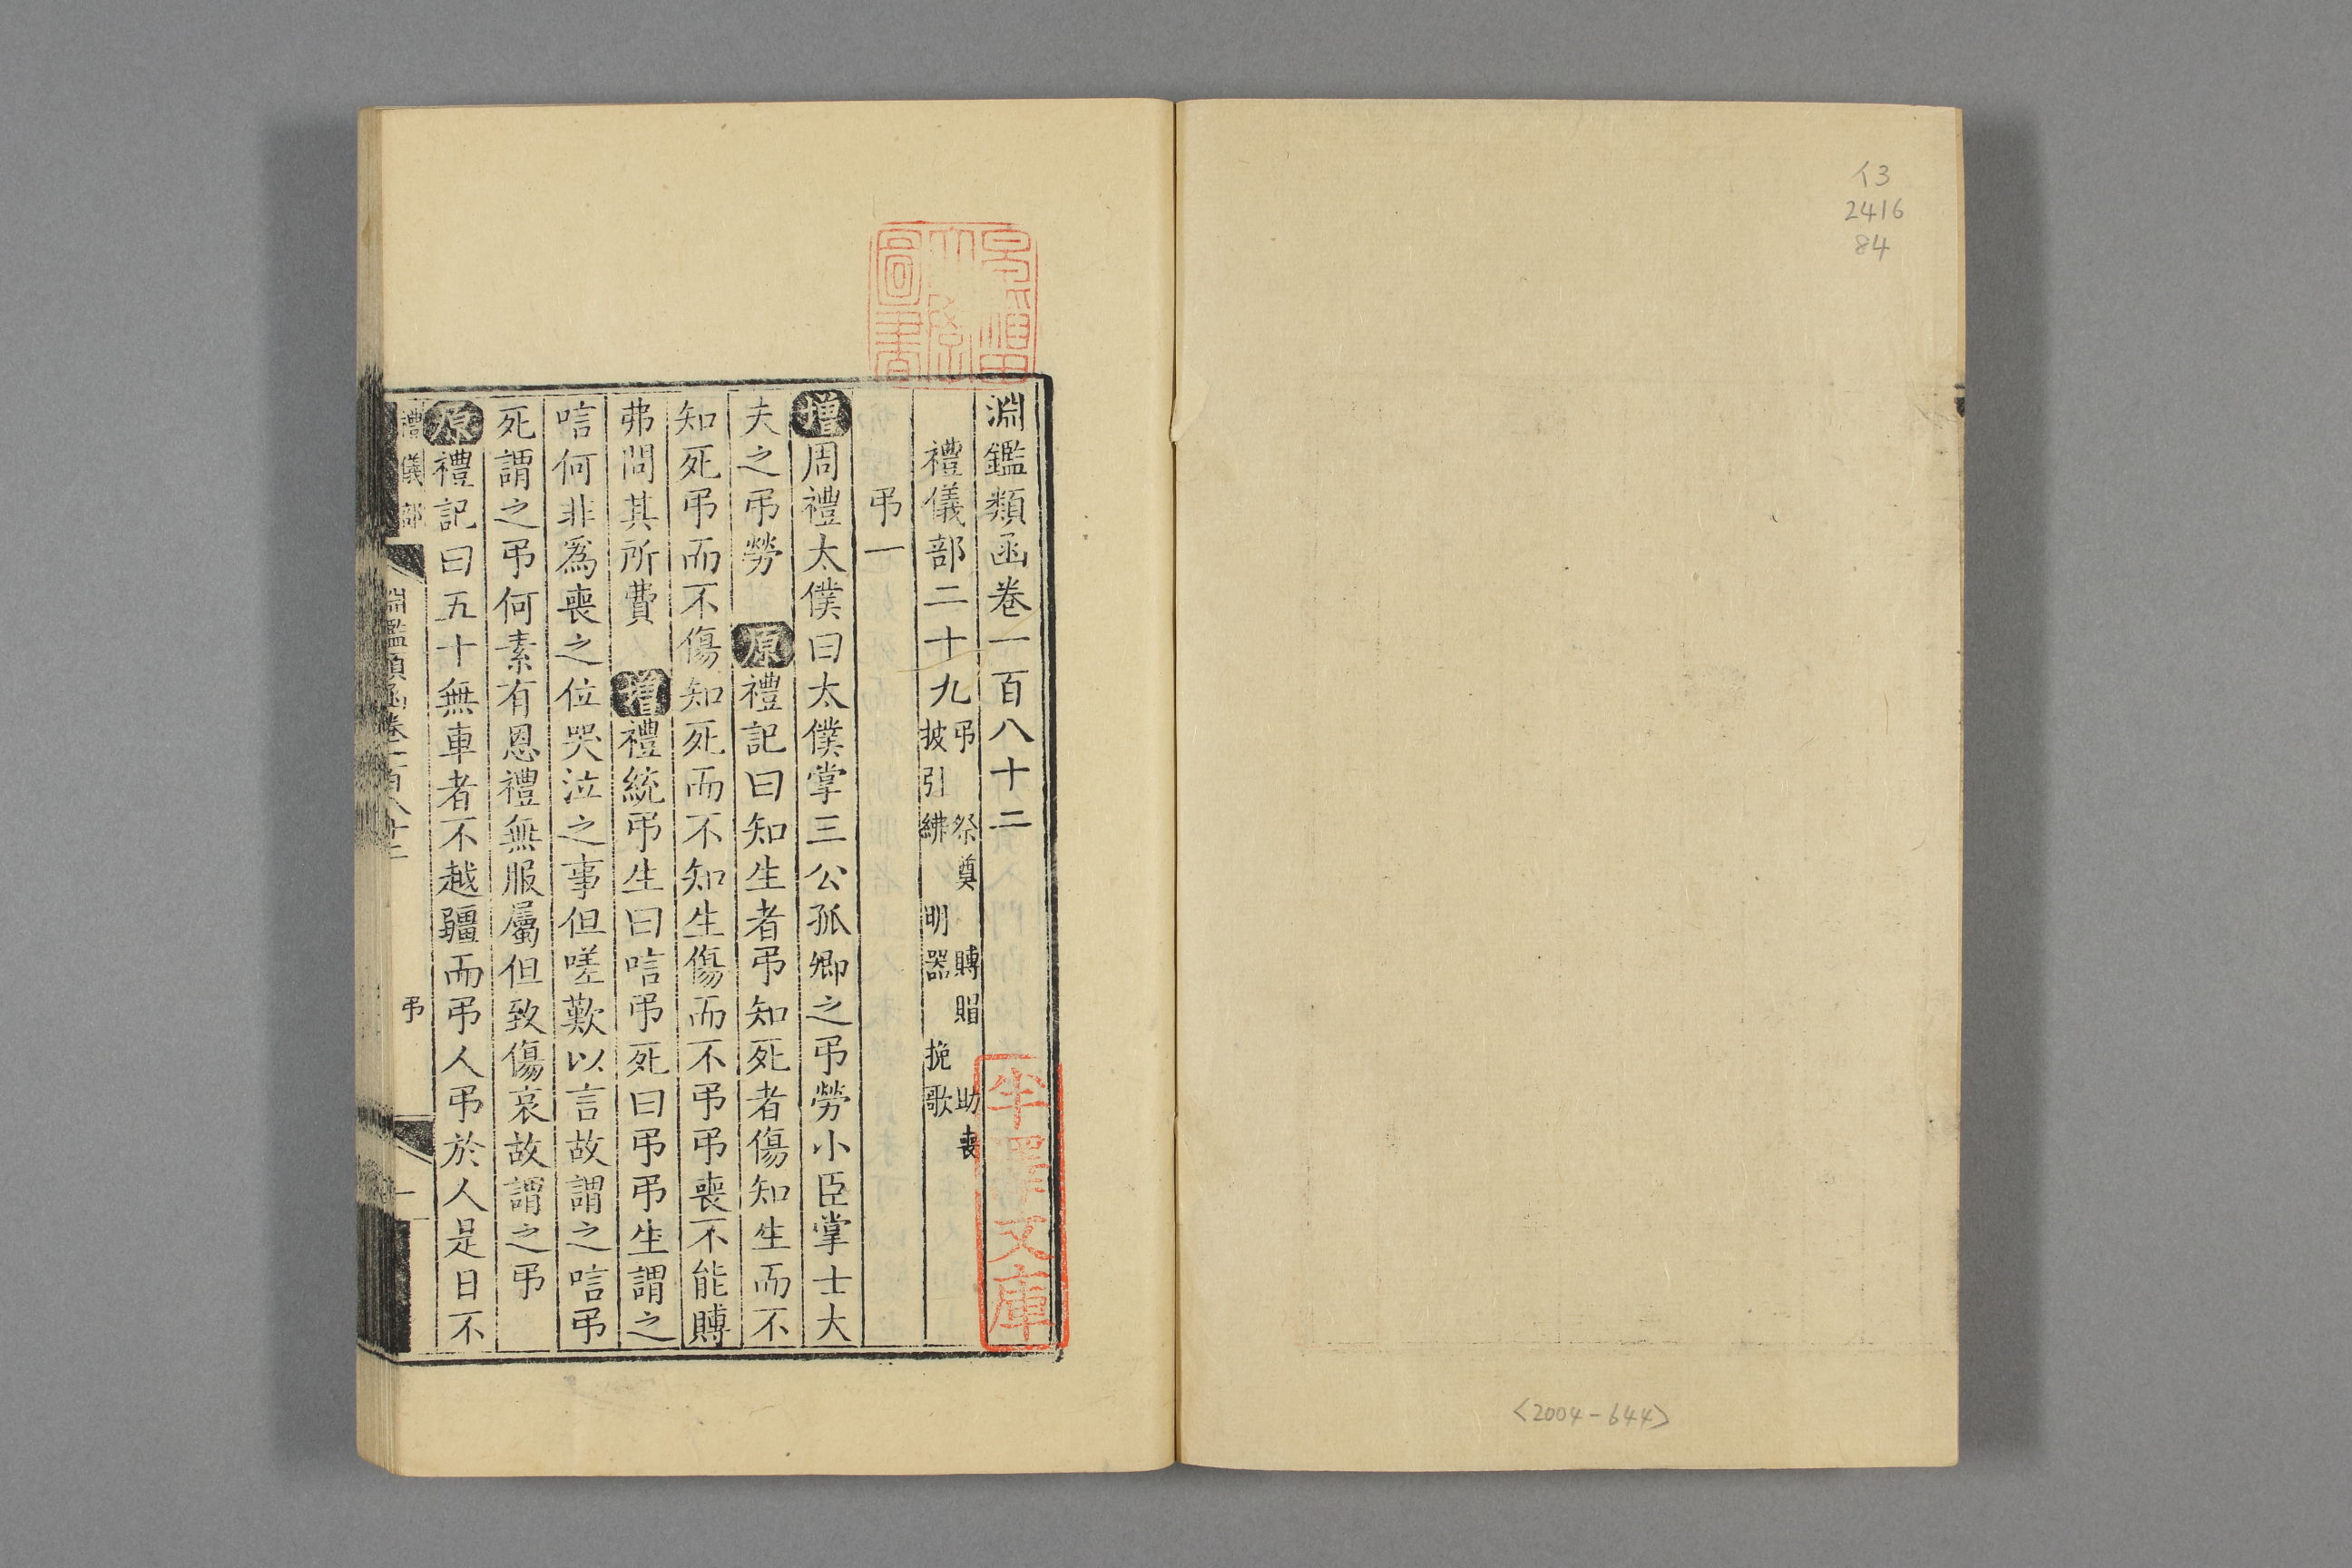 イ3
2416
84
<2004-644>
淵鑑類函卷一百八十二
禮儀部二十九弔 祭奠 賻賵 助喪
披引紼 明器 挽歌
弔一
增周禮太僕曰太僕掌三公孤卿之弔勞小臣掌士大
夫之弔勞 原禮記曰知生者弔知死者傷知生而不
知死弔而不傷知死而不知生傷而不弔弔喪不能賻
弗問其所費 增禮統弔生曰唁弔死曰弔弔生謂之
唁何非爲喪之位哭泣之事但嗟歎以言故謂之唁弔
死謂之弔何素有恩禮無服屬但致傷哀故謂之弔
原禮記曰五十無車者不越疆而弔人弔於人是日不
禮儀部 淵鑑類函卷一百八十二 弔 一
圖書
文庫